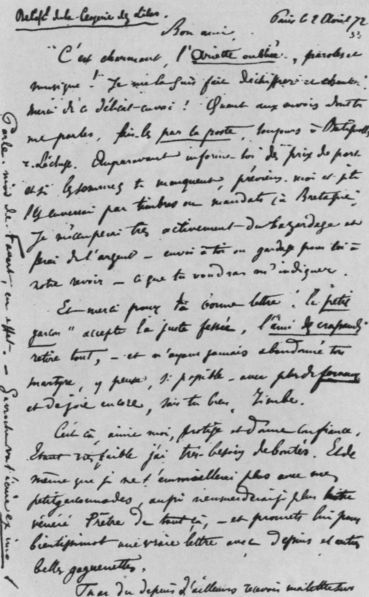 De la Closerie des Lilas
Paris le 2 Avril 72
Bon ami,
"C'est charmant, l'Ariette oubliée, paroles et
musique ! Je me la suis fait déchiffrer et chanter !
merci de ce délicat envoi ! Quant aux envois dont tu
me parles, fais-les par la poste, toujours à Batignolles,
r. Lécluse. Auparavant informe-toi des prix de port
et si les sommes te manquent, préviens-moi et je
les enverrai par timbres ou mandats (à Bretagne).
Je m'occuperai très activement du bazardage et
ferai de l'argent - envoi à toi ou gardage pour toi à
notre revoir - ce que tu voudras m'indiquer.
Et merci pour ta bonne lettre. Le "petit
garçon" accepte la juste fessée, l'"ami des crapauds"
retire tout, - et n'ayant jamais abandonné ton
martyre, y pense, si possible - avec plus de ferveur
et de joie encore, sais-tu bien, Rimbe.
C'est ça, aime-moi, protège et donne confiance.
Étant très faible j'ai très besoin de bontés. Et de
même que je ne t'emmiellerai plus avec mes
petitgarçonnades, aussi n'emmerderai-je plus notre
vénéré Prêtre de tout ça, - et promets-lui pour
bientissimot une vraie lettre avec dessins et autres
belles goguenettes.
Tu as dû depuis d'ailleurs recevoir ma lettre sur
Parle-moi de Favart, en effet. - Gavroche va t'écrire ex imo